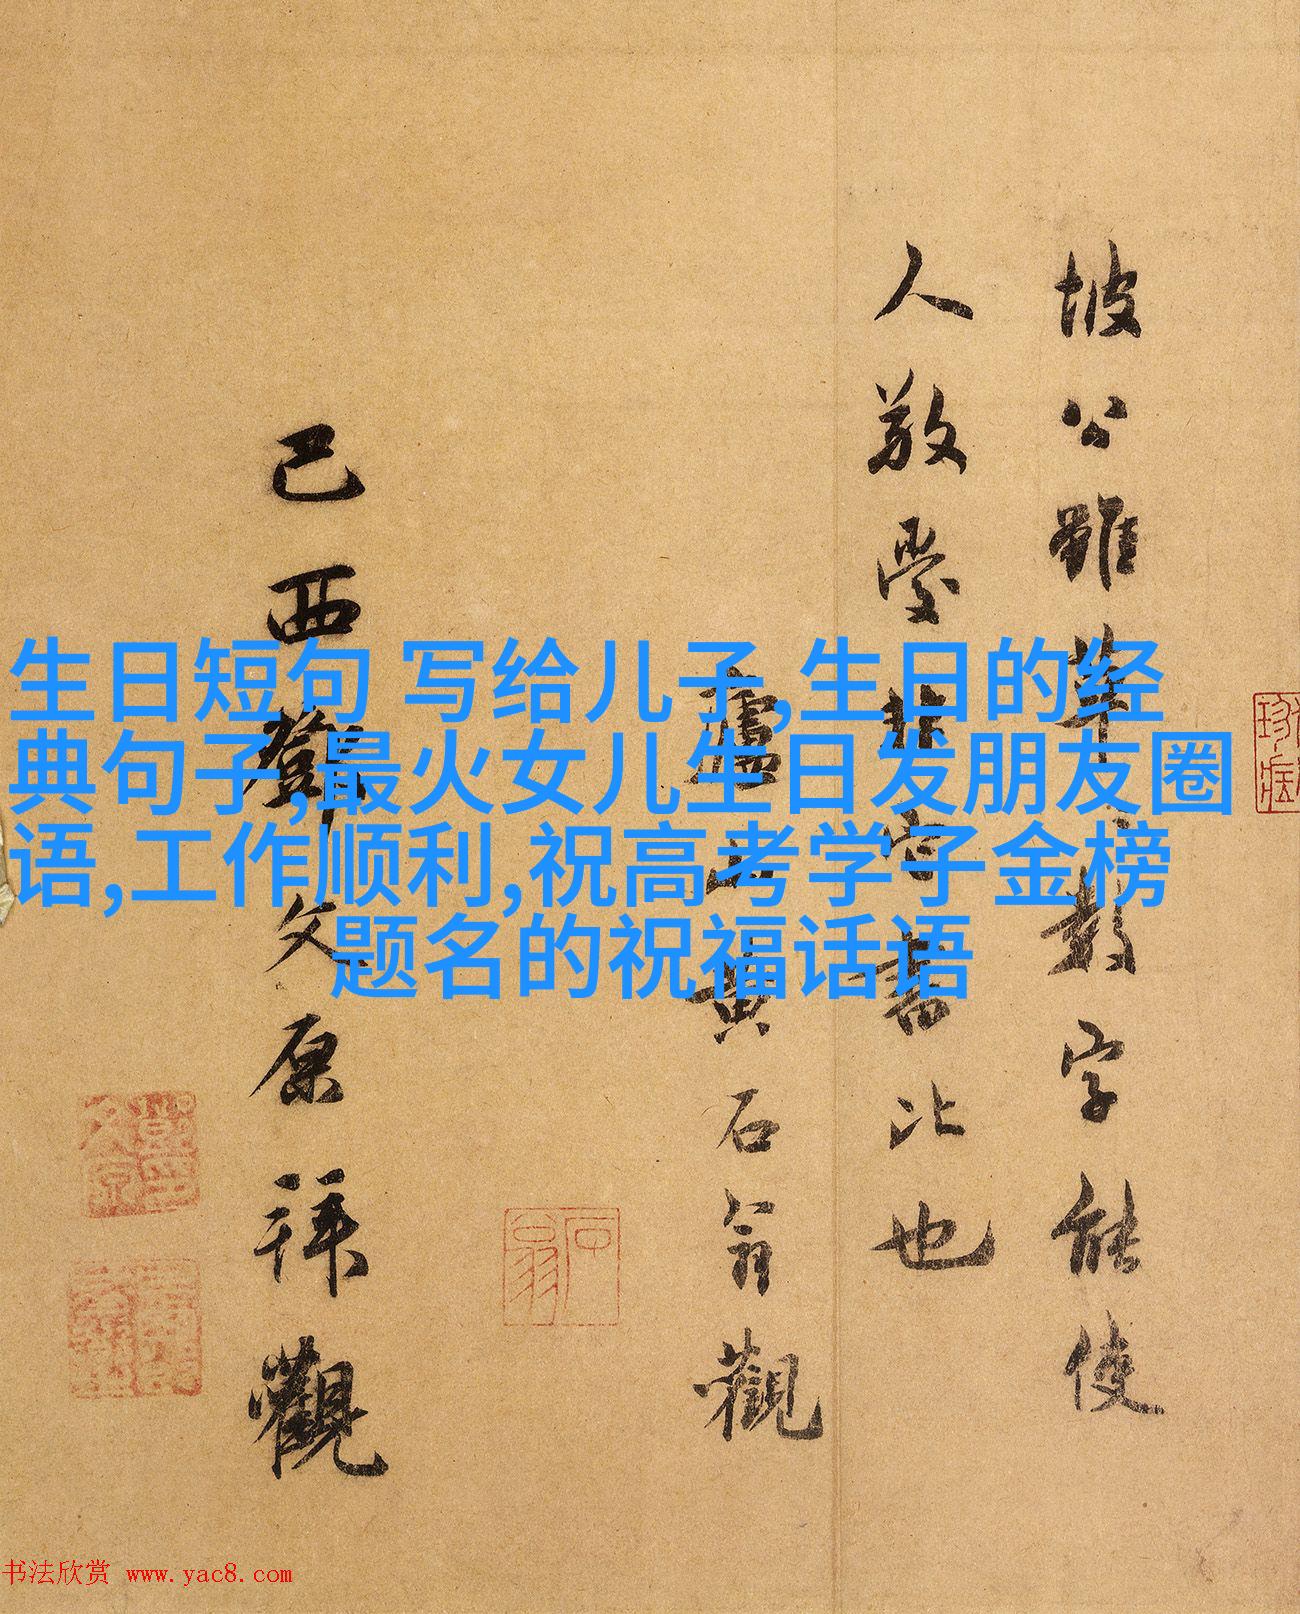 坡公雖草草數字能使
人敬愛非以書比也
廬山黄石翁觀
己酉鄧文原拜觀
石翁
生日短句 写给儿子,生日的经
典句子,最火女儿生日发朋友圈
语,工作顺利,祝高考学子金榜
题名的祝福话语
书法欣赏 www.yac8.com